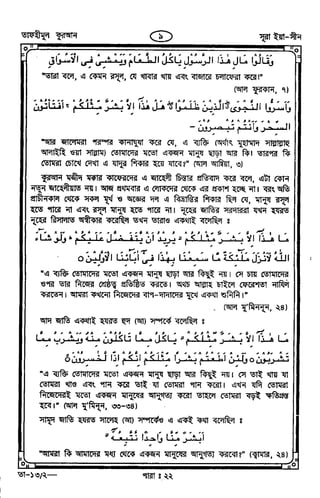 তাফহীমুল কুরআন ৯ সূরা ইয়া-সীন
وَقَالُوْا مَالِ هٰذَا الرَّسُوْلِ يَاْكُلُ الطَّعَامَ وَيَمْشِىْ فِى الْاَسْوَاقِ
"তারা বলে, এ কেমন রসূল, যে খাবার খায় এবং বাজারে চলাফেরা করে।"
(আল ফুরকান, ৭)
وَاَسَرُّوا النَّجْوَى الَّذِيْنَ ظَلَمُوْا هَلْ هٰذَا اِلَّا بَشَرٌ مِّثْلُكُمْ اَفَتَاْتُوْنَ
السِّحْرَ وَاَنْتُمْ تُبْصِرُوْنَ -
"আর জালেমরা পরস্পর কানাঘুষা করে যে, এ ব্যক্তি (অর্থাৎ মুহাম্মাদ সাল্লাল্লাহু
আলাইহি ওয়া সাল্লাম) তোমাদের মতো একজন মানুষ ছাড়া আর কি! তারপর কি
তোমরা চোখে দেখা এ যাদুর শিকার হয়ে যাবে?" (আল আম্বিয়া, ৩)
কুরআন মজীদ মক্কার কাফেরদের এ জাহেলী চিন্তার প্রতিবাদ করে বলে, এটা কোন
নতুন জাহেলিয়াত নয়। আজ প্রথমবার এ লোকদের থেকে এর প্রকাশ হচ্ছে না। বরং অতি
প্রাচীনকাল থেকে সকল মূর্খ ও অজ্ঞের দল এ বিভ্রান্তির শিকার ছিল যে, মানুষ রসূল
হতে পারে না এবং রসূল মানুষ হতে পারে না। নূহের জাতির সরদাররা যখন হযরত
নূহের রিসালাত অস্বীকার করেছিল তখন তারাও একথাই বলেছিল ঃ
مَا هٰذَا اِلَّا بَشَرٌ مِّثْلُكُمْ يُرِيْدُ اَنْ يَّتَفَضَّلَ عَلَيْكُمْ وَلَوْ شَاءَ
اللّٰهُ لَاَنْزَلَ مَلٰئِكَةً مَّا سَمِعْنَا بِهٰذَا فِىْ اٰبَائِنَا الْاَوَّلِيْنَ ٥
"এ ব্যক্তি তোমাদের মতো একজন মানুষ ছাড়া আর কিছুই নয়। সে চায় তোমাদের
ওপর তার নিজের শ্রেষ্ঠত্ব প্রতিষ্ঠিত করতে। অথচ আল্লাহ চাইলে ফেরেশতা নাযিল
করতেন। আমরা কখনো নিজেদের বাপ-দাদাদের মুখে একথা শুনিনি।"
(আল মু'মিনূন, ২৪)
আদ জাতি একথাই হযরত হূদ (আ) সম্পর্কে বলেছিল ঃ
مَا هٰذَا اِلَّا بَشَرٌ مِّثْلُكُمْ يَاْكُلُ مِمَّا تَاْكُلُوْنَ مِنْهُ وَيَشْرَبُ مِمَّا
تَشْرَبُوْنَ ٥ وَلَئِنْ اَطَعْتُمْ بَشَرًا مِّثْلَكُمْ اِنَّكُمْ اِذًا لَّخٰسِرُوْنَ ٥
"এ ব্যক্তি তোমাদের মতো একজন মানুষ ছাড়া আর কিছুই নয়। সে তাই খায় যা
তোমরা খাও এবং পান করে তাই যা তোমরা পান করো। এখন যদি তোমরা
নিজেদেরই মতো একজন মানুষের আনুগত্য করো তাহলে তোমরা বড়ই ক্ষতিগ্রস্ত
হবে।" (আল মু'মিনূন, ৩৩-৩৪)
সামূদ জাতি হযরত সালেহ (আ) সম্পর্কেও এ একই কথা বলেছিল ঃ
اَبَشَرًا مِّنَّا وَاحِدًا نَّتَّبِعُهٗ ٥
"আমরা কি আমাদের মধ্য থেকে একজন মানুষের আনুগত্য করবো?" (ক্বামার, ২৪)
তা-১৩/২— পারা ঃ ২২